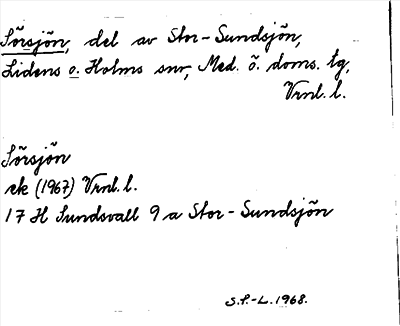 Sörsjön, del av Stor-Sundsjön,
Lidens o. Holms snr, Med. ö. doms. tg,
Vrnl. l.
Sörsjön
ek (1967) Vrnl. l.
17 H Sundsvall 9 a Stor-Sundsjön
S.P.-L. 1968.